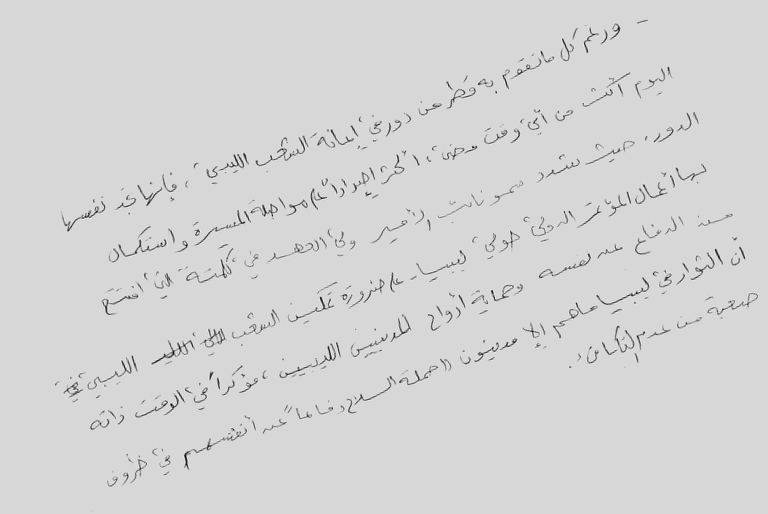 - ورغم كل ما تقوم به قطر من دور في إعانة الشعب الليبي، فإنها تجد نفسها
اليوم أكثر من أي وقت مضى، أكثر إصرارا على مواصلة المسيرة واستكمال
الدور. حيث شدد سمو نائب الأمير ولي العهد في كلمته التي افتتح
بها أعمال المؤتمر الدولي حول ليبيا - على ضرورة تمكين الشعب الليبي
من الدفاع عن نفسه وحماية أرواح المدنيين الليبيين، مؤكداً في الوقت ذاته
أن الثوار في ليبيا ماهم إلا مدنيون حملة السلاح دفاعاً عن أنفسهم في ظروف
صعبة من عدم التكافؤ.